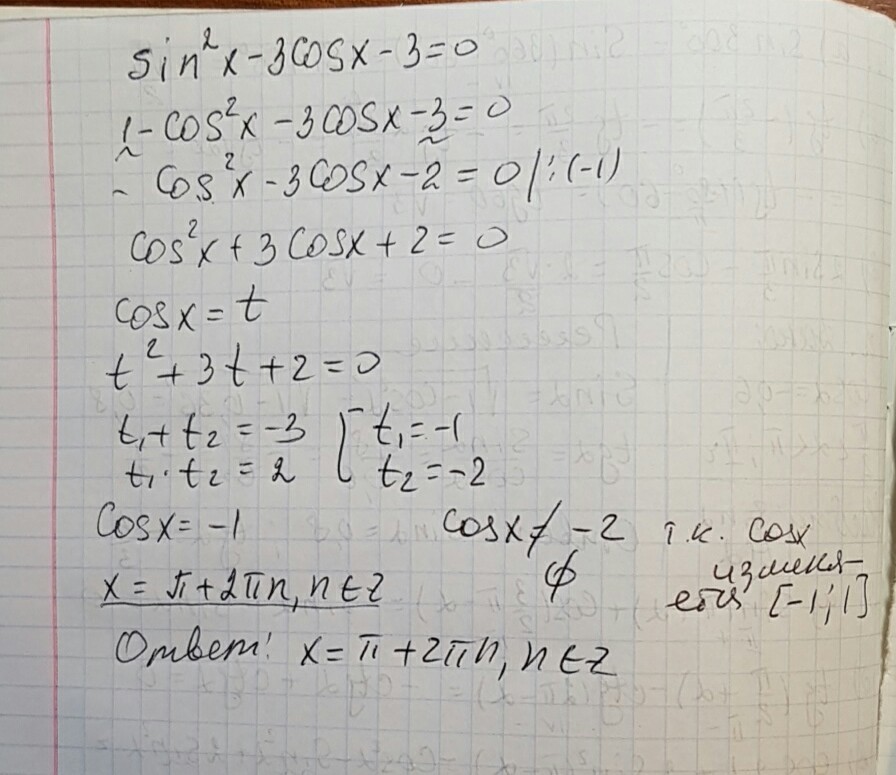 sin²x - 3cosx - 3 = 0
1 - cos²x - 3cosx - 3 = 0
- cos²x - 3cosx - 2 = 0 | : (-1)
cos²x + 3cosx + 2 = 0
cosx = t
t² + 3t + 2 = 0
t₁ + t₂ = -3 [ t₁ = -1
t₁ · t₂ = 2 t₂ = -2
cosx = -1 cosx ≠ -2 т.к. cosx
x = π + 2πn, n ∈ Z ∅ изменя-
ется [-1; 1]
Ответ: x = π + 2πn, n ∈ Z